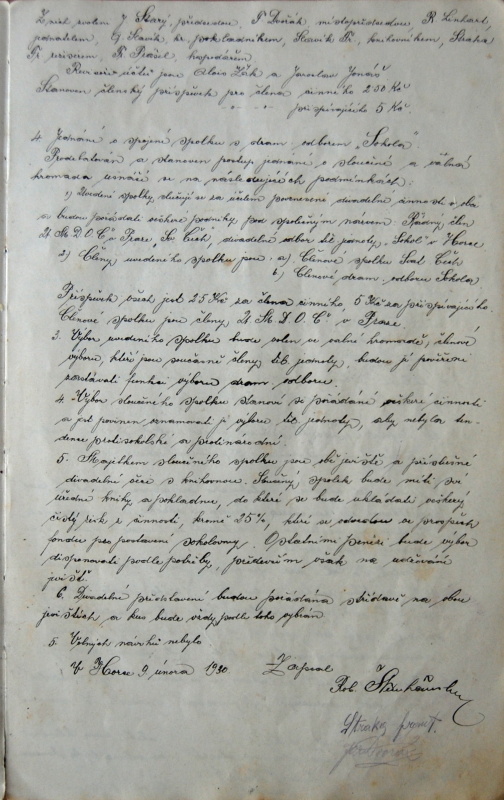 Zvoleni J. Starý, předsedou, F. Dvořák, místopředsedou, R. Linhart,
jednatelem, G. Slavík, kr. pokladníkem, Slavík Fr., knihovníkem, Straka
Fr. revisorem, Fr. hospodářem
Revisoři účtů jsou Alois Žák a Jaroslav Jonáš
Stanoven členský příspěvek pro člena činného 2.50 Kč
" " " přispívajícího 5 Kč.
4. Jednání o spojení spolku s dram. odborem "Sokola".
Prodebatován a stanoven postup jednání o sloučení a valná
hromada usnáší se na následujících podmínkách:
1) Uvedené spolky slučují se za účelem povznesení divadelní činnosti a oba
a budou pořádati veškeré podniky pod společným názvem Řádný člen
Ú. M. D. O. Č. v Praze, Sv. Čech, divadelní odbor těl. jednoty "Sokol" v Horce
2) Členy uvedeného spolku jsou a) Členové spolku Svat. Čech
b) Členové dram. odboru Sokola
Příspěvek všech jest 25 Kč za člena činného, 5 Kč za přispívajícího.
Členové spolku jsou členy Ú. M. D. O. Č. v Praze.
3. Výbor uvedeného spolku bude volen ve valné hromadě, členové
výboru, kteří jsou současně členy těl. jednoty, budou jí pověřeni
zastávati funkci výboru dram. odboru.
4. Výbor sloučeného spolku stanoví se pořádání veškeré činnosti
a jest povinen oznamovati ji výboru těl. jednoty, aby nebyla ten-
dence protisokolská a protinárodní.
5. Majetkem sloučeného spolku jsou obě jeviště a příslušné
divadelní věci s knihovnou. Sloučený spolek bude míti své
úřední knihy a pokladnu, do které se bude ukládati veškerý
čistý zisk z činnosti, kromě 25%, které se odvedou ve prospěch
fondu pro postavení sokolovny. Ostatními penězi bude výbor
disponovati podle potřeby, především však na udržování
jeviště.
6. Divadelní představení budou pořádána střídavě na obou
jevištích a kus bude vždy podle toho vybrán.
5. Volných návrhů nebylo
V Horce 9. února 1930. Zapsal
Rob.
Straka